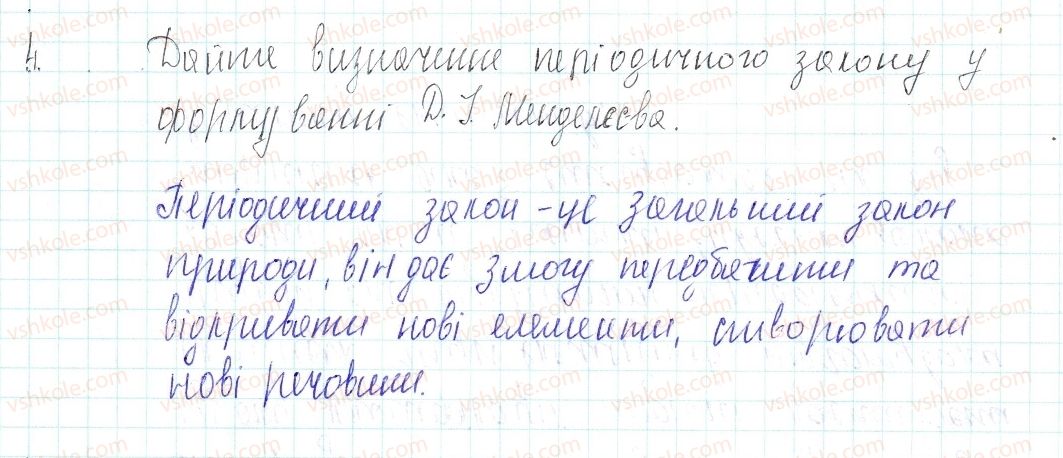 4. Дайте визначення періодичного закону у
формуванні Д. І. Менделєєва.
Періодичний закон – це загальний закон
природи, він дає змогу передбачити та
відкривати нові елементи, створювати
нові речовини.